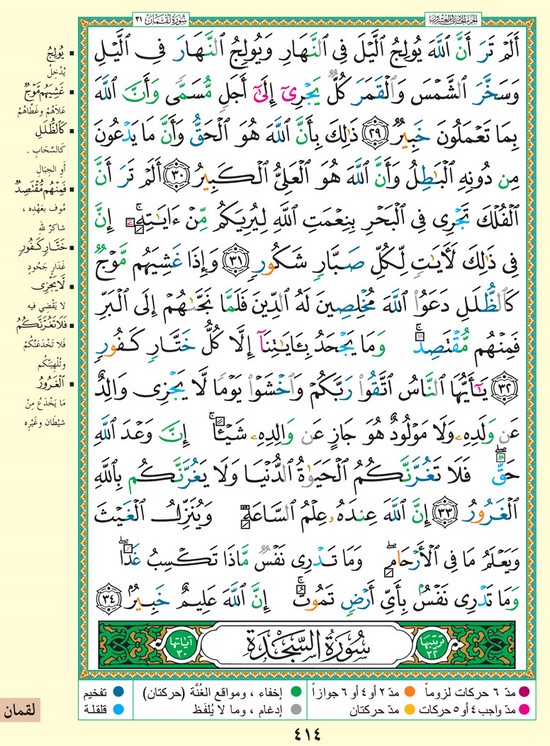 سُورَةُ لُقْمَان ٣١
أَلَمْ تَرَ أَنَّ ٱللَّهَ يُولِجُ ٱلَّيْلَ فِى ٱلنَّهَارِ وَيُولِجُ ٱلنَّهَارَ فِى ٱلَّيْلِ
وَسَخَّرَ ٱلشَّمْسَ وَٱلْقَمَرَ كُلٌّ يَجْرِىٓ إِلَىٰٓ أَجَلٍ مُّسَمًّى وَأَنَّ ٱللَّهَ
بِمَا تَعْمَلُونَ خَبِيرٌ ٢٩ ذَٰلِكَ بِأَنَّ ٱللَّهَ هُوَ ٱلْحَقُّ وَأَنَّ مَا يَدْعُونَ
مِن دُونِهِ ٱلْبَٰطِلُ وَأَنَّ ٱللَّهَ هُوَ ٱلْعَلِىُّ ٱلْكَبِيرُ ٣٠ أَلَمْ تَرَ أَنَّ
ٱلْفُلْكَ تَجْرِى فِى ٱلْبَحْرِ بِنِعْمَتِ ٱللَّهِ لِيُرِيَكُم مِّنْ ءَايَٰتِهِۦٓ إِنَّ
فِى ذَٰلِكَ لَءَايَٰتٍ لِّكُلِّ صَبَّارٍ شَكُورٍ ٣١ وَإِذَا غَشِيَهُم مَّوْجٌ
كَٱلظُّلَلِ دَعَوُا۟ ٱللَّهَ مُخْلِصِينَ لَهُ ٱلدِّينَ فَلَمَّا نَجَّىٰهُمْ إِلَى ٱلْبَرِّ
فَمِنْهُم مُّقْتَصِدٌ وَمَا يَجْحَدُ بِـَٔايَٰتِنَآ إِلَّا كُلُّ خَتَّارٍ كَفُورٍ
٣٢ يَٰٓأَيُّهَا ٱلنَّاسُ ٱتَّقُوا۟ رَبَّكُمْ وَٱخْشَوْا۟ يَوْمًا لَّا يَجْزِى وَالِدٌ
عَن وَلَدِهِۦ وَلَا مَوْلُودٌ هُوَ جَازٍ عَن وَالِدِهِۦ شَيْـًٔا إِنَّ وَعْدَ ٱللَّهِ
حَقٌّ فَلَا تَغُرَّنَّكُمُ ٱلْحَيَوٰةُ ٱلدُّنْيَا وَلَا يَغُرَّنَّكُم بِٱللَّهِ
ٱلْغَرُورُ ٣٣ إِنَّ ٱللَّهَ عِندَهُۥ عِلْمُ ٱلسَّاعَةِ وَيُنَزِّلُ ٱلْغَيْثَ
وَيَعْلَمُ مَا فِى ٱلْأَرْحَامِ وَمَا تَدْرِى نَفْسٌ مَّاذَا تَكْسِبُ غَدًا
وَمَا تَدْرِى نَفْسٌۢ بِأَىِّ أَرْضٍ تَمُوتُ إِنَّ ٱللَّهَ عَلِيمٌ خَبِيرٌۢ ٣٤
ترتيبها ٣٢ سُورَةُ السَّجْدَة آياتها ٣٠
يُولِجُ
يُدْخِلُ
غَشِيَهُم مَّوْجٌ
عَلَاهُمْ وغَطَّاهُمْ
كَالظُّلَلِ
كَالسَّحَابِ .
أو الجِبَالِ
فَمِنْهُم مُّقْتَصِدٌ
مُوفٍ بِعَهْدِهِ ،
شَاكِرٌ للهِ
خَتَّارٍ كَفُورٍ
غَدَّارٍ جَحُودٍ
لَا يَجْزِى
لا يَقْضِي فيه
فَلَا تَغُرَّنَّكُمُ
فَلَا تَخْدَعَنَّكُمْ
وتُلْهِيَنَّكُمْ
الْغَرُورُ
مَا يَخْدَعُ مِنْ
شَيْطَانٍ وغَيْرِهِ
لقمان
مدّ ٦ حركات لزوماً مدّ ٢ أو ٤ أو ٦ جوازاً إخفاء ، ومواقع الغُنَّة (حركتان) تفخيم
مدّ واجب ٤ أو ٥ حركات مدّ حركتان إدغام ، وما لا يُلفَظ قلقلة
٤١٤